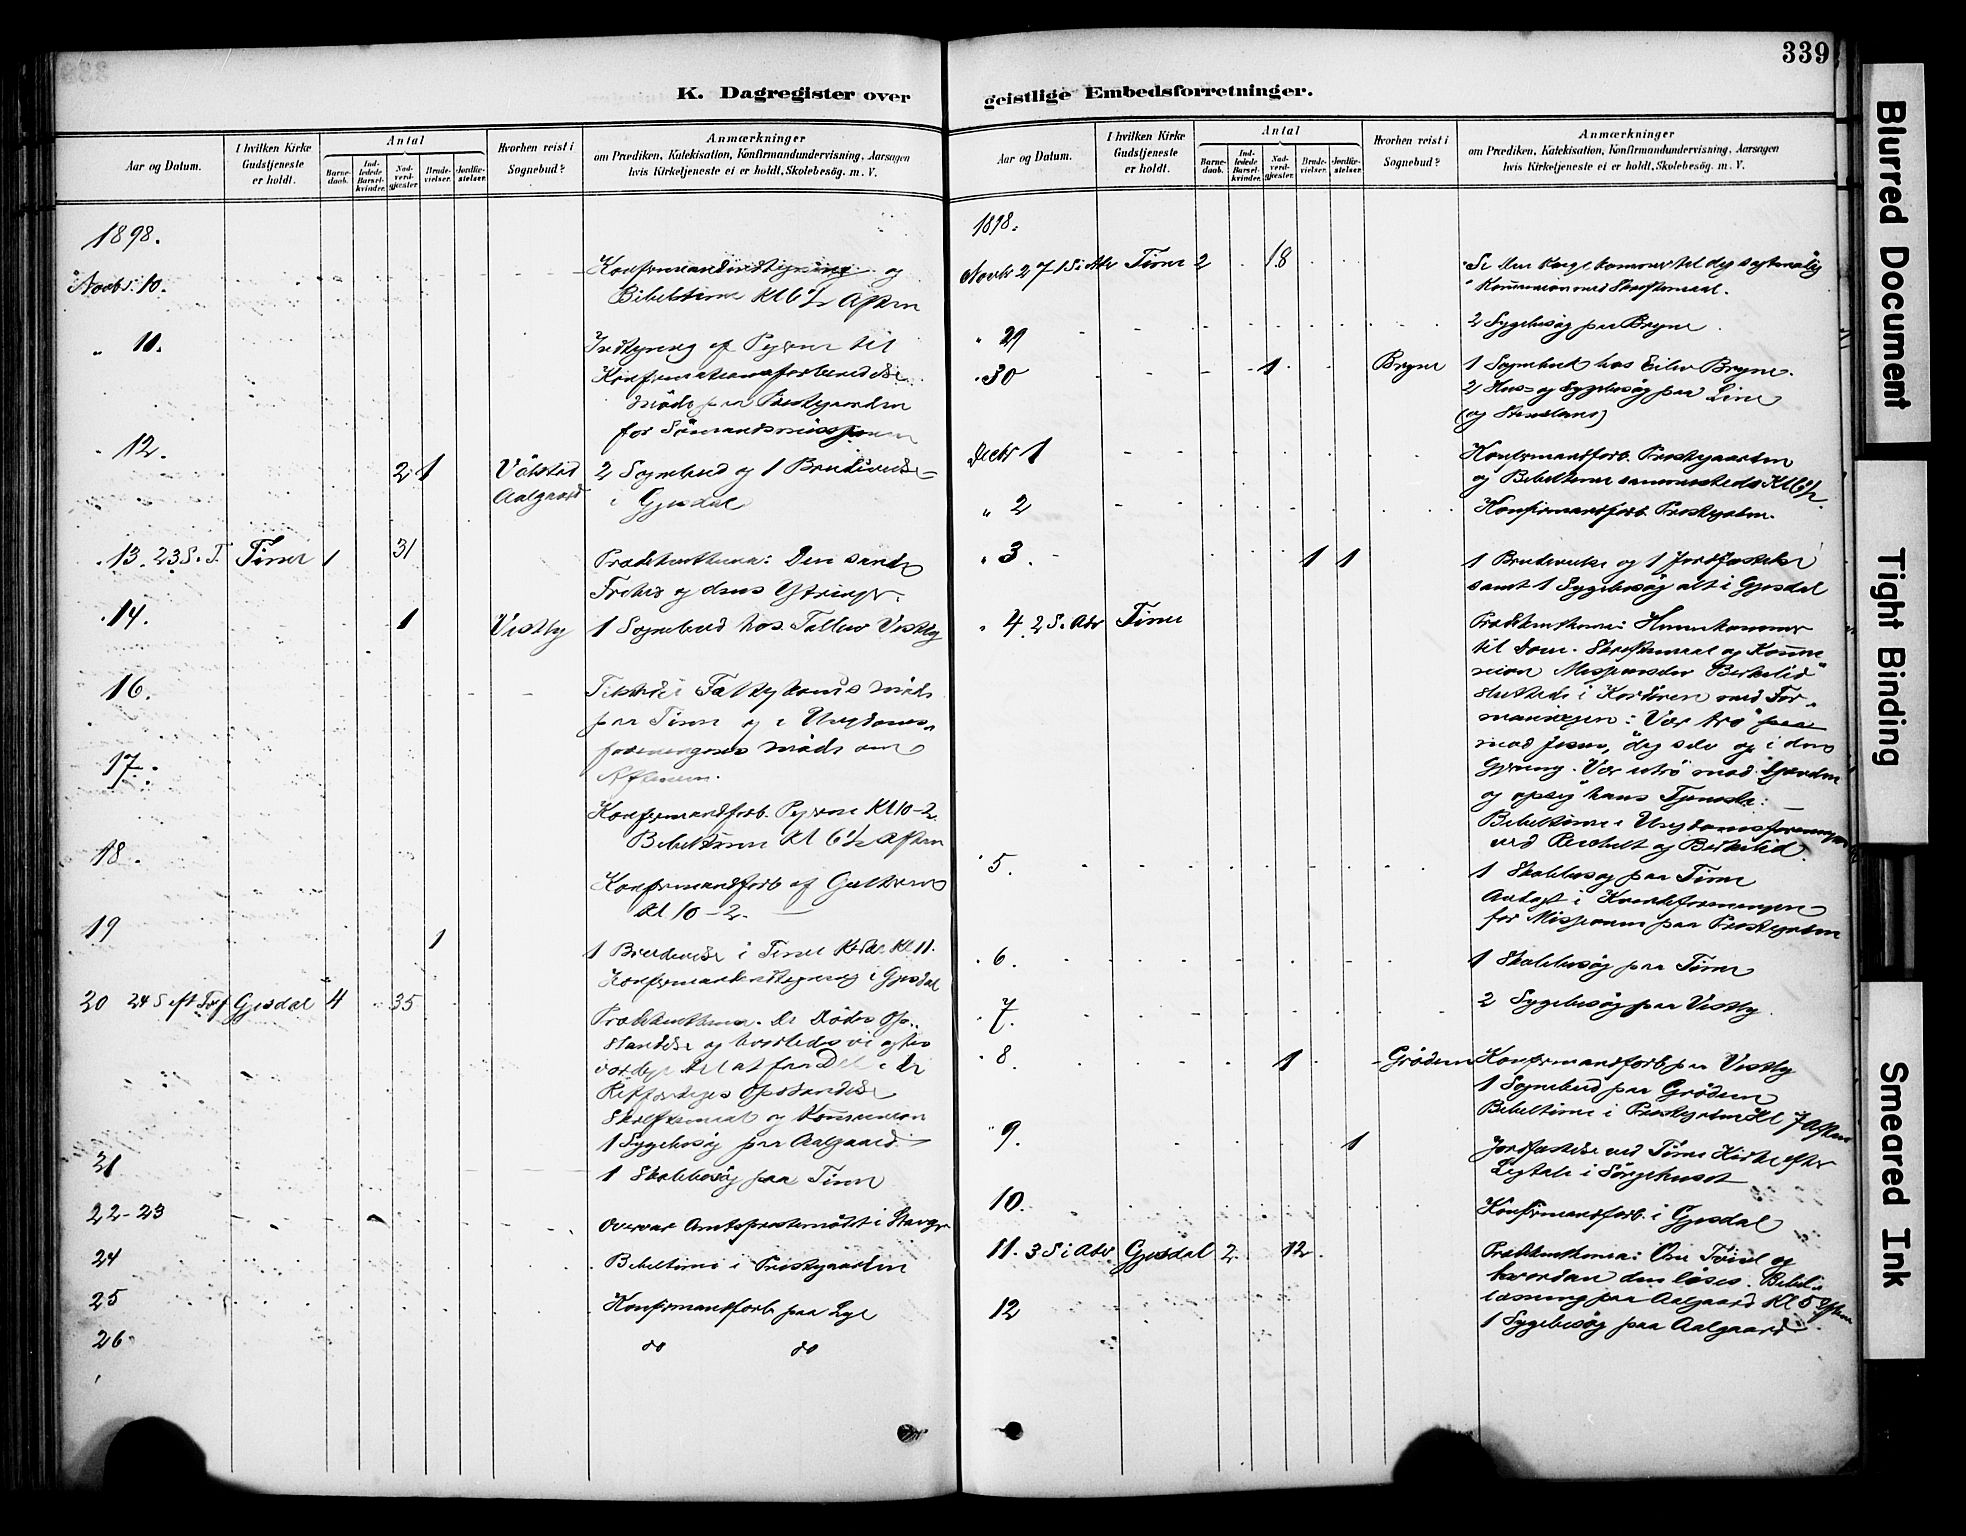 339
K. Dagregister over
geistlige Embedsforretninger.
Aar og Datum.
I hvilken Kirke Gudstjeneste er holdt.
Antal
Barnedaab.
Indledede Barselkvinder.
Nadverdgjester.
Brudevielser.
Jordfæstelser.
Hvorhen reist i Sognebud?
Anmærkninger
om Prædiken, Katekisation, Konfirmandundervisning, Aarsagen
hvis Kirketjeneste ei er holdt, Skolebesøg. m. V.
1898.
Novbr. 10.
og
Bibeltime Kl 6½ Aften
" 11.
Indtegning af Pigerne til
Konfirmationsforberedelse.
Møde paa Prestegaarden
for Sømandsmissionen
" 12.
2 1
Aalgaard
2 Sognebud og 1 Brudevielse
i Gjesdal
" 13. 23 S. T. Time 1 31
Prædikenthema: Den sande
Frihed og dens
" 14. 1 Vestly 1 Sognebud hos Tollev Vestly
16.
Møde
paa Time og i Ungdoms-
foreningens Møde om
Aftenen.
17.
Konfirmandforb. Pigerne Kl 10-2
Bibeltime Kl 6½ Aften
18.
Konfirmandforb af Gutterne
Kl 10-2.
19
1
1 Brudevielse i Time Kirke Kl 11.
i Gjesdal
20 24 S eft Tref Gjesdal 4 35
Prædikenthema. De Dødes Op-
standelse og hvorledes vi agtes
værdige til at faa Del i de
Retfærdiges Opstandelse
Skriftemaal og Kommunion
1 Sygebesøg paa Aalgaard
21
1 Skolebesøg paa Time
22-23
Overvar Amtsprestemødet i Stavgr
24
Bibeltime i Prestegaarden
25
Konfirmandforb paa Lye
26
do do
Aar og Datum.
I hvilken Kirke Gudstjeneste er holdt.
Antal
Barnedaab.
Indledede Barselkvinder.
Nadverdgjester.
Brudevielser.
Jordfæstelser.
Hvorhen reist i Sognebud?
Anmærkninger
om Prædiken, Katekisation, Konfirmandundervisning, Aarsagen
hvis Kirketjeneste ei er holdt, Skolebesøg. m. V.
1898.
Novbr 27 1 S i Adv Time 2 18
Se din Konge kommer til dig sagtmodig
Kommunion med Skriftemaal.
" 29
2 Sygebesøg paa Bryne
" 30 1 Bryne 1 Sognebud hos Eilev Bryne.
2 Hus- og Sygebesøg paa Line
Decbr 1
Konfirmandforb. Prestegaarden
og Bibeltime sammesteds Kl 6½
" 2
Konfirmandforb. Prestegaarden.
" 3. 1 1
1 Brudevielse og 1 Jordfæstelse
samt 1 Sygebesøg alt i Gjesdal
" 4. 2 S. Adv Time
Prædikenthema: Herren kommer
til Dom. Skriftemaal og Kommu-
nion Birkelid
sluttede i Kordøren med For-
maningen: Vær tro
mod Jesus, dig selv og i din
Gjerning. Vær utro mod
og opsig hans Tjeneste.
Bibeltime i Ungdomsforeningen
ved og Birkelid.
5.
1 Skolebesøg paa Time
i Kvindeforeningen
for Missionen paa Prestegaarden
6.
1 Skolebesøg paa Time
7.
2 Sygebesøg paa Vestly.
8. 1 Grødem Konfirmandforb paa Vestly
1 Sognebud paa Grødem
Bibeltime i Prestegaarden Kl 7 Aften
9. 1
Jordfæstelse ved Time Kirke efter
Ligtale i Sørgehuset
10.
Konfirmandforb. i Gjesdal
11. 3 S i Adv Gjesdal 2 12
Prædikenthema: Om Tvivl og
hvordan den løses. Bibel-
læsning paa Aalgaard Kl 5
12
1 Sygebesøg paa Aalgaard
Blurred Document
Tight Binding
Smeared Ink